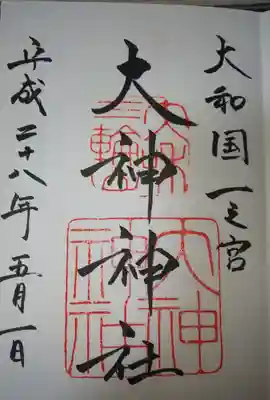 大和国一之宮
大神神社
三輪
大神
神社
平成二十八年五月一日